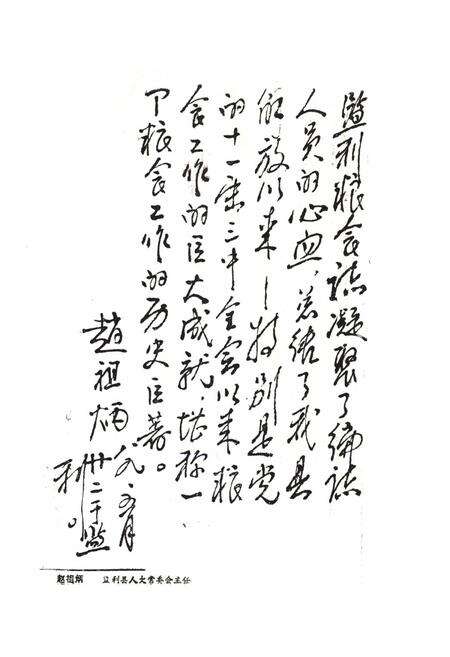 监利粮食誌凝聚了编誌
人员的心血，总结了我县
解放以来——特别是党
的十一届三中全会以来粮
食工作的巨大成就，堪称一
个粮食工作的历史巨著。
趙祖炳
八九、五月
廿二于监
利。
赵祖炳 监利县人大常委会主任